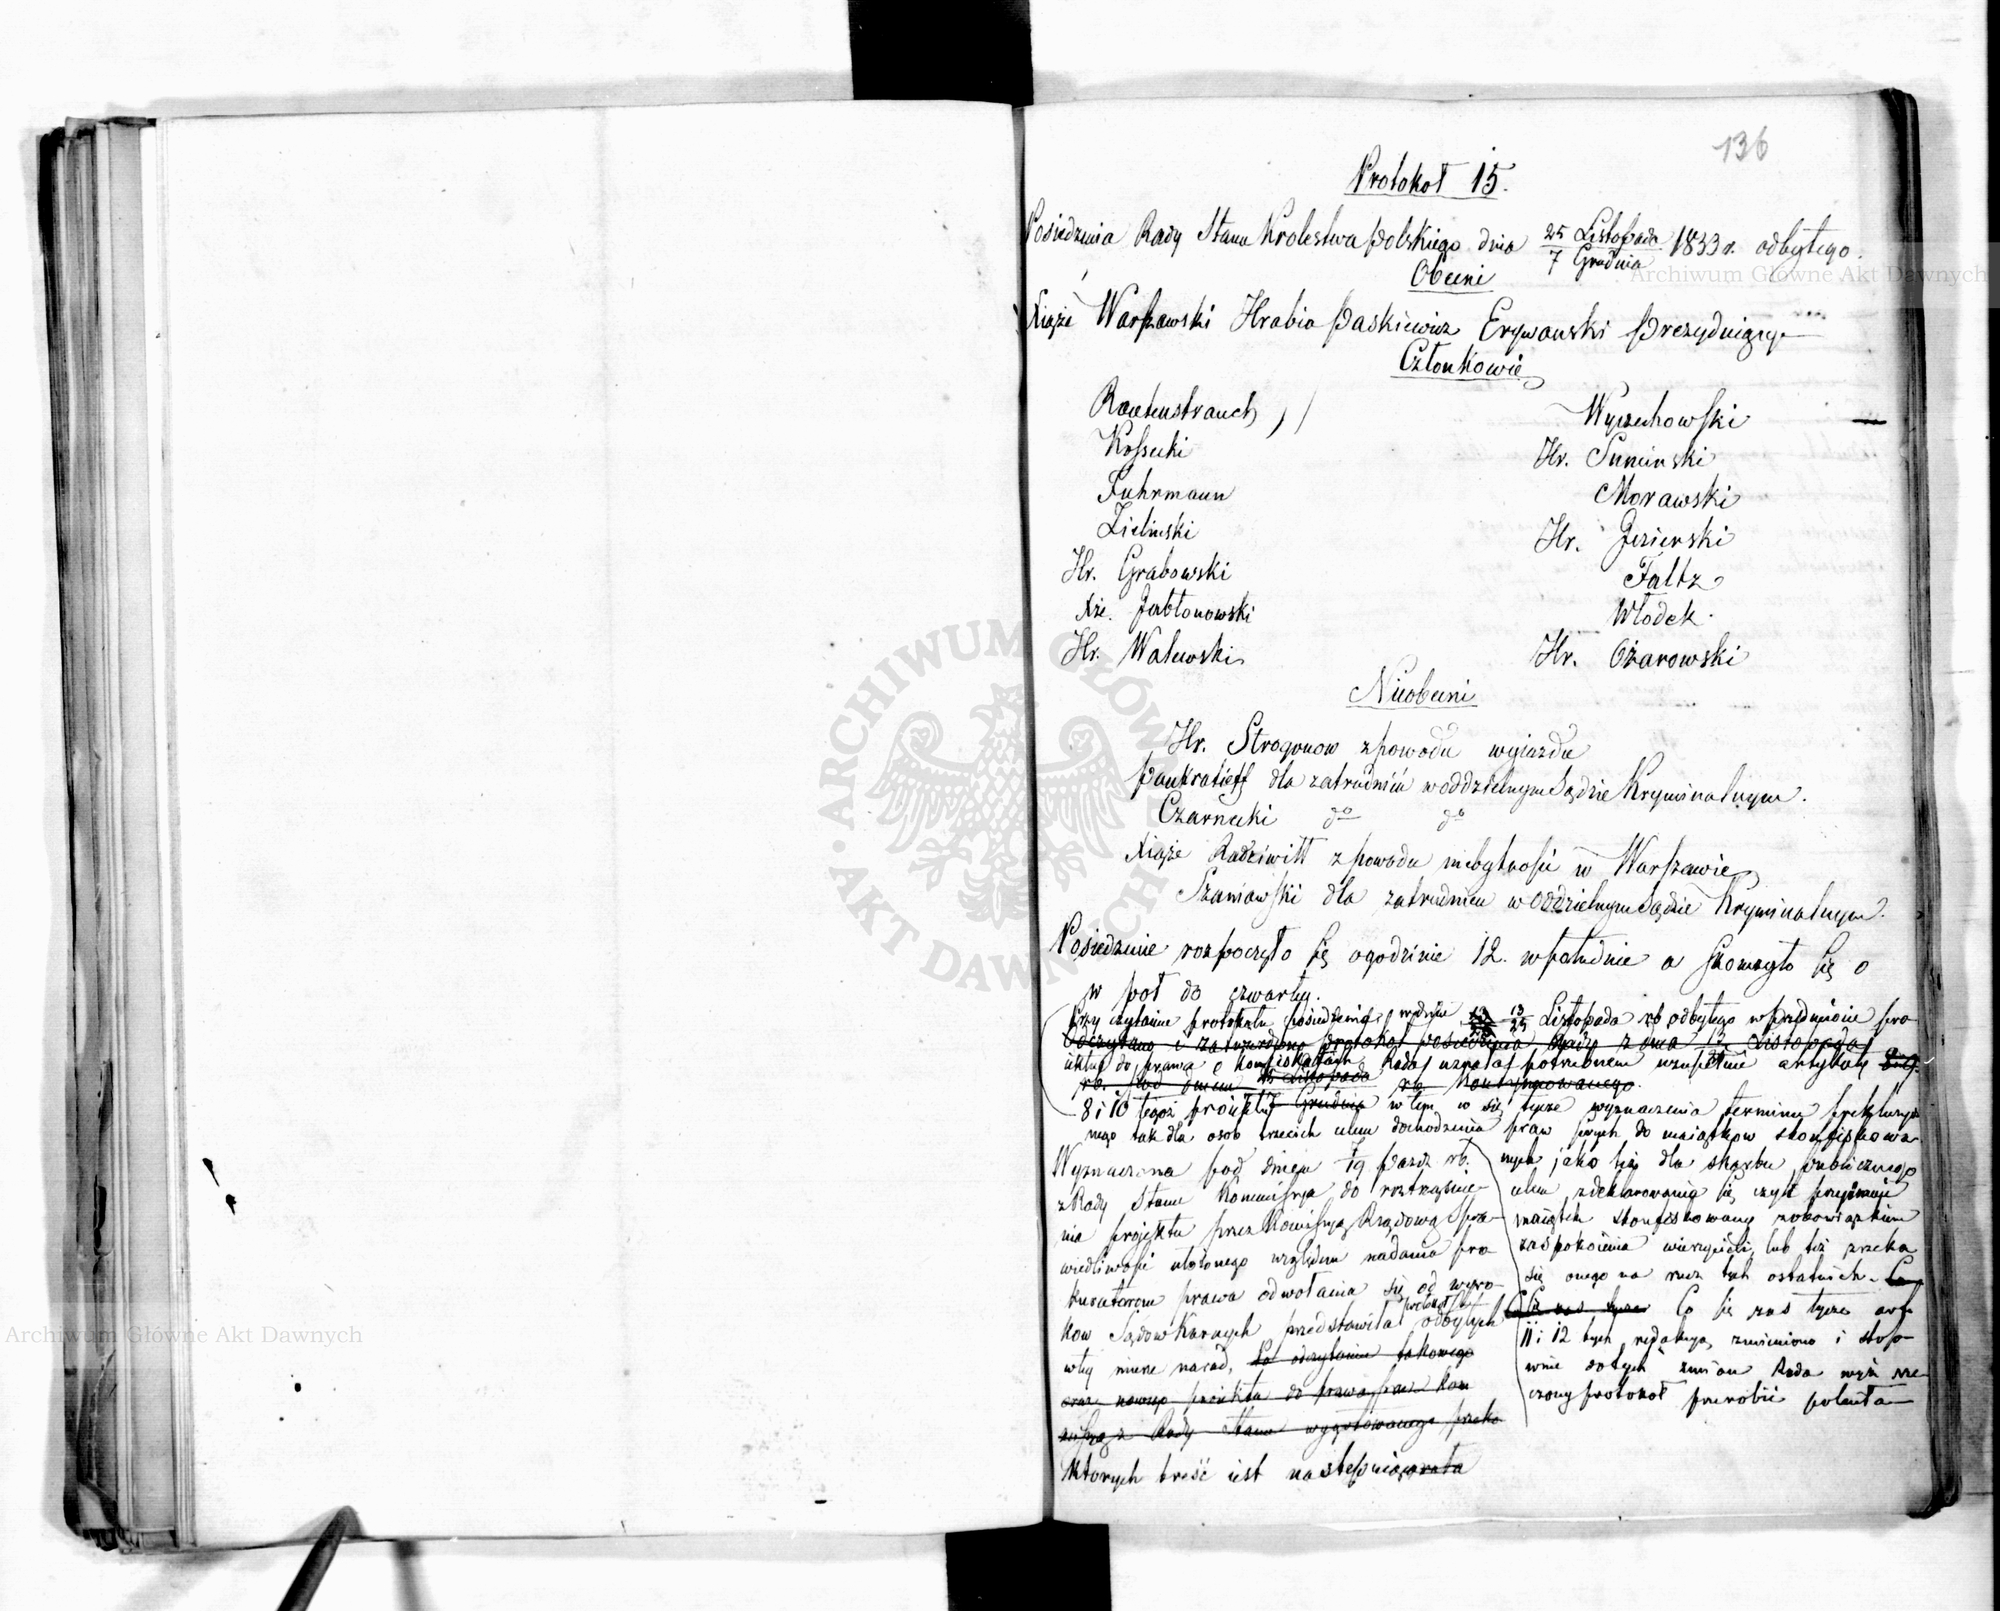 136
Protokoł 15.
Posiedzenia Rady Stanu Krolestwa Polskiego dnia 25 Listopada / 7 Grudnia 1833 r. odbytego.
Obecni
Xiąże Warszawski Hrabia Paskiewicz Erywański Prezydujący
Członkowie
Rautenstrauch
Kossecki
Fuhrmann
Zielinski
Hr. Grabowski
Xże. Jabłonowski
Hr. Walewski
Wyczechowski
Hr. Suminski
Morawski
Hr. Jezierski
Faltz
Włodek.
Hr. Ożarowski
Nieobecni
Hr. Strogonow z powodu wyjazdu
Pankratieff dla zatrudnień w oddzielnym Sądzie Kryminalnym.
Czarnecki do do
Xiąże Radziwiłł z powodu niebytności w Warszawie
Szaniawski dla zatrudnien w Oddzielnym Sądzie Kryminalnym.
Posiedzenie rozpoczęło się o godzinie 12. w południe a skończyło się o
w poł do czwartej.
Przy czytaniu protokułu posiedzenia w dniu 13/25 Listopada rb odbytego w przedmiocie pro-
Odczytano i zatwierdzono protokoł posiedzenia Rady z dnia Listopada
iektu do prawa o konfiskatach Rada uznała potrzebnem uzupełnić artykuły
rb. pod dniem Listopada rb. kontynuowanego.
8 i 10 tegoż proiektu Grudnia w tem co się tycze wyznaczenia terminu prekluzyi-
nego tak dla osob trzecich celem dochodzenia praw swych do maiątkow skonfiskowa-
nych jako też dla skarbu publicznego
celem zdeklarowania się czyli przyimuie
maiątek skonfiskowany z obowiązkiem
zaspokoienia wierzycieli lub też zrzeka
się onego na rzecz tych ostatnich. Co
Co się zaś tycze art
11 i 12 tych redakcyą zmieniono i stoso-
wnie do tych zmian Rada wyż rze-
czony protokoł przerobić poleciła
Wyznaczona pod dniem /19 Pazdz rb.
z Rady Stanu Kommissya do roztrząśnie-
nia projektu przez Kommissyą Rządową Spra-
wiedliwości ułożonego względem nadania pro-
kuratorom prawa odwołania się od wyro-
kow Sądow Karnych przedstawiła protokoł odbytych
w tej mierze narad. Po odczytaniu takowego
oraz nowego proiektu do prawa przez Kom
missyą z Rady Stanu wygotowanego
ktorych treść iest następuiąca
Archiwum Główne Akt Dawnych
Archiwum Główne Akt Dawnych
ARCHIWUM GŁÓWNE AKT DAWNYCH